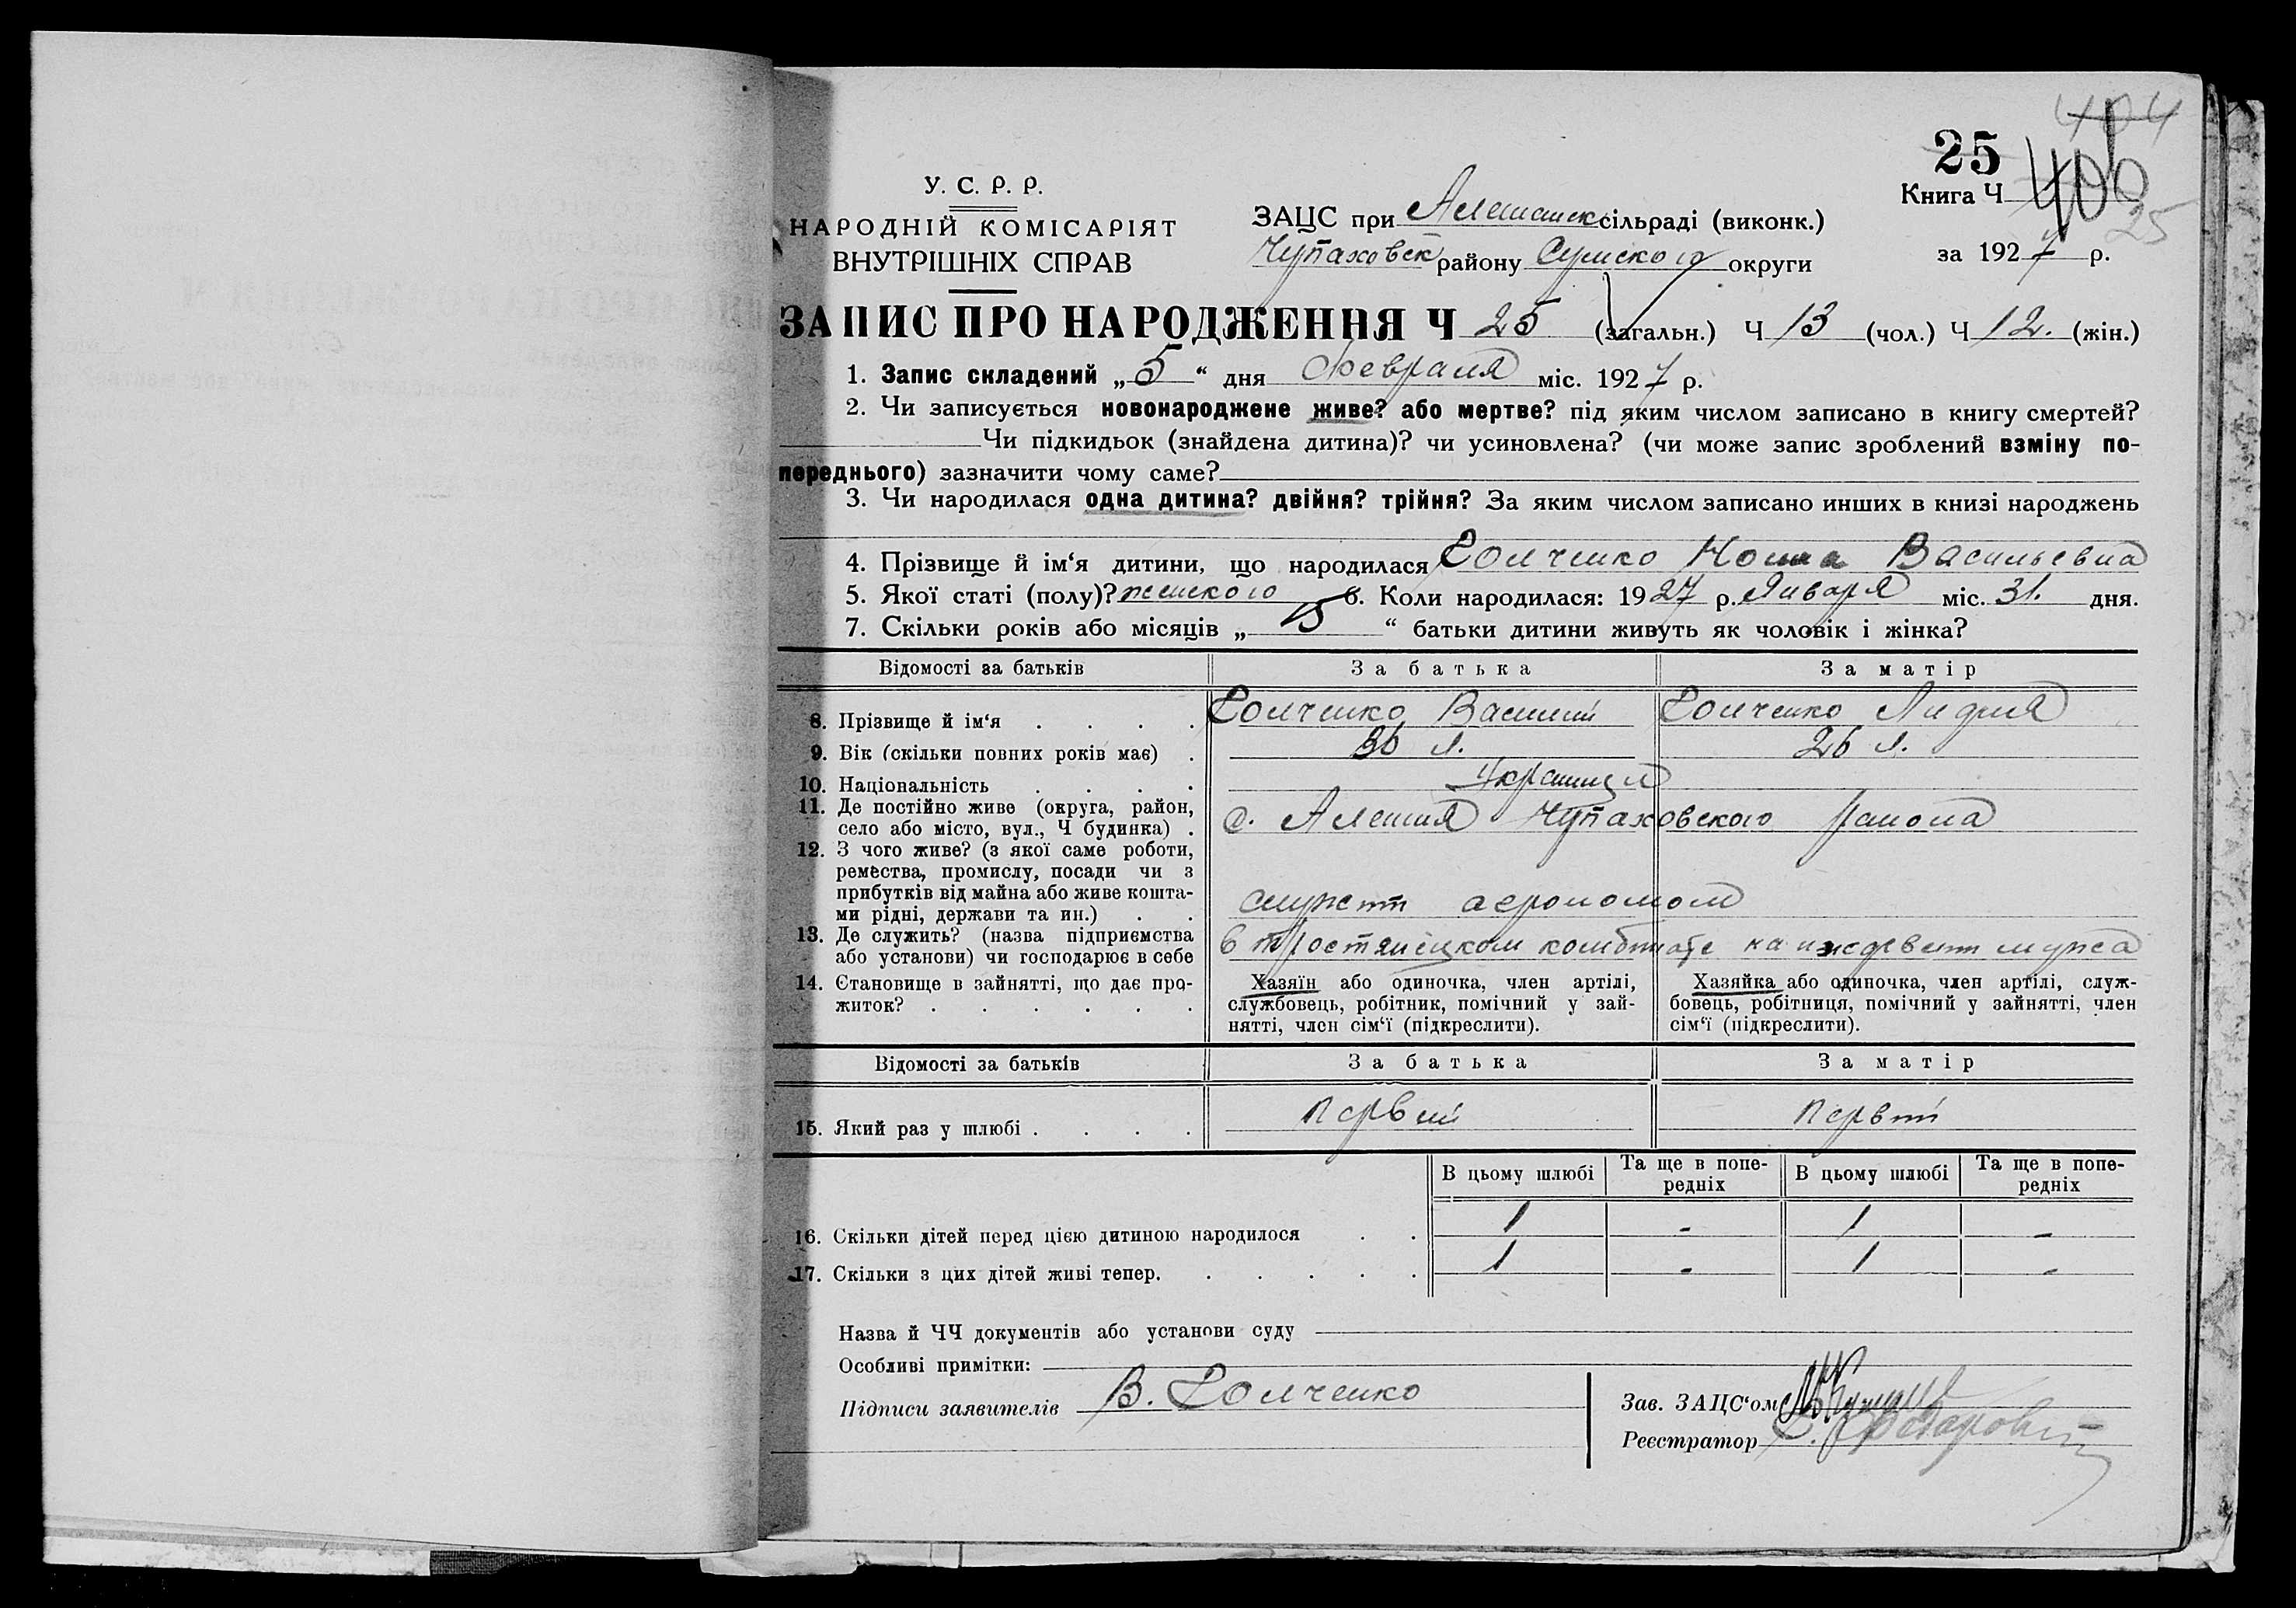 404
25
406
25
У. С. Р. Р.
НАРОДНІЙ КОМІСАРІЯТ
ВНУТРІШНІХ СПРАВ
Книга Ч
ЗАЦС при Алешанск сільраді (виконк.)
Чупаховск району Сумского округи
за 1927 р.
ЗАПИС ПРО НАРОДЖЕННЯ Ч 25 (загальн.) Ч 13 (чол.) Ч 12. (жін.)
1. Запис складений „5“ дня Февраля міс. 1927 р.
2. Чи записується новонароджене живе? або мертве? під яким числом записано в книгу смертей?
Чи підкидьок (знайдена дитина)? чи усиновлена? (чи може запис зроблений взміну по-
переднього) зазначити чому саме?
3. Чи народилася одна дитина? двійня? трійня? За яким числом записано инших в книзі народжень
4. Прізвище й ім‘я дитини, що народилася Васильевна
5. Якої статі (полу)? женского 6. Коли народилася: 1927 р. Января міс. 31. дня.
7. Скільки років або місяців „ “ батьки дитини живуть як чоловік і жінка?
Відомості за батьків За батька За матір
8. Прізвище й ім‘я . . . . Василий Лидия
9. Вік (скільки повних років має) . 36 л. 26 л.
10. Національність . . . . Украинця
11. Де постійно живе (округа, район,
село або місто, вул., Ч будинка) . с. Алешня Чупаховского района
12. З чого живе? (з якої саме роботи,
ремества, промислу, посади чи з
прибутків від майна або живе кошта-
ми рідні, держави та ин.) . . служит агрономом
13. Де служить? (назва підприємства
або установи) чи господарює в себе в Тростянецком комбинате на иждевит мужа
14. Становище в зайнятті, що дає про-
житок? . . . . . .
Хазяїн або одиночка, член артілі,
службовець, робітник, помічний у зай-
нятті, член сім‘ї (підкреслити).
Хазяйка або одиночка, член артілі, служ-
бовець, робітниця, помічний у зайнятті, член
сім‘ї (підкреслити).
Відомості за батьків За батька За матір
15. Який раз у шлюбі . . . . первий первий
В цьому шлюбі Та ще в попе-
редніх В цьому шлюбі Та ще в попе-
редніх
16. Скільки дітей перед цією дитиною народилося . . 1 - 1 -
17. Скільки з цих дітей живі тепер. . . . . . 1 - 1 -
Назва й ЧЧ документів або установи суду
Особливі примітки:
Підписи заявителів В.
Зав. ЗАЦС‘ом
Реєстратор